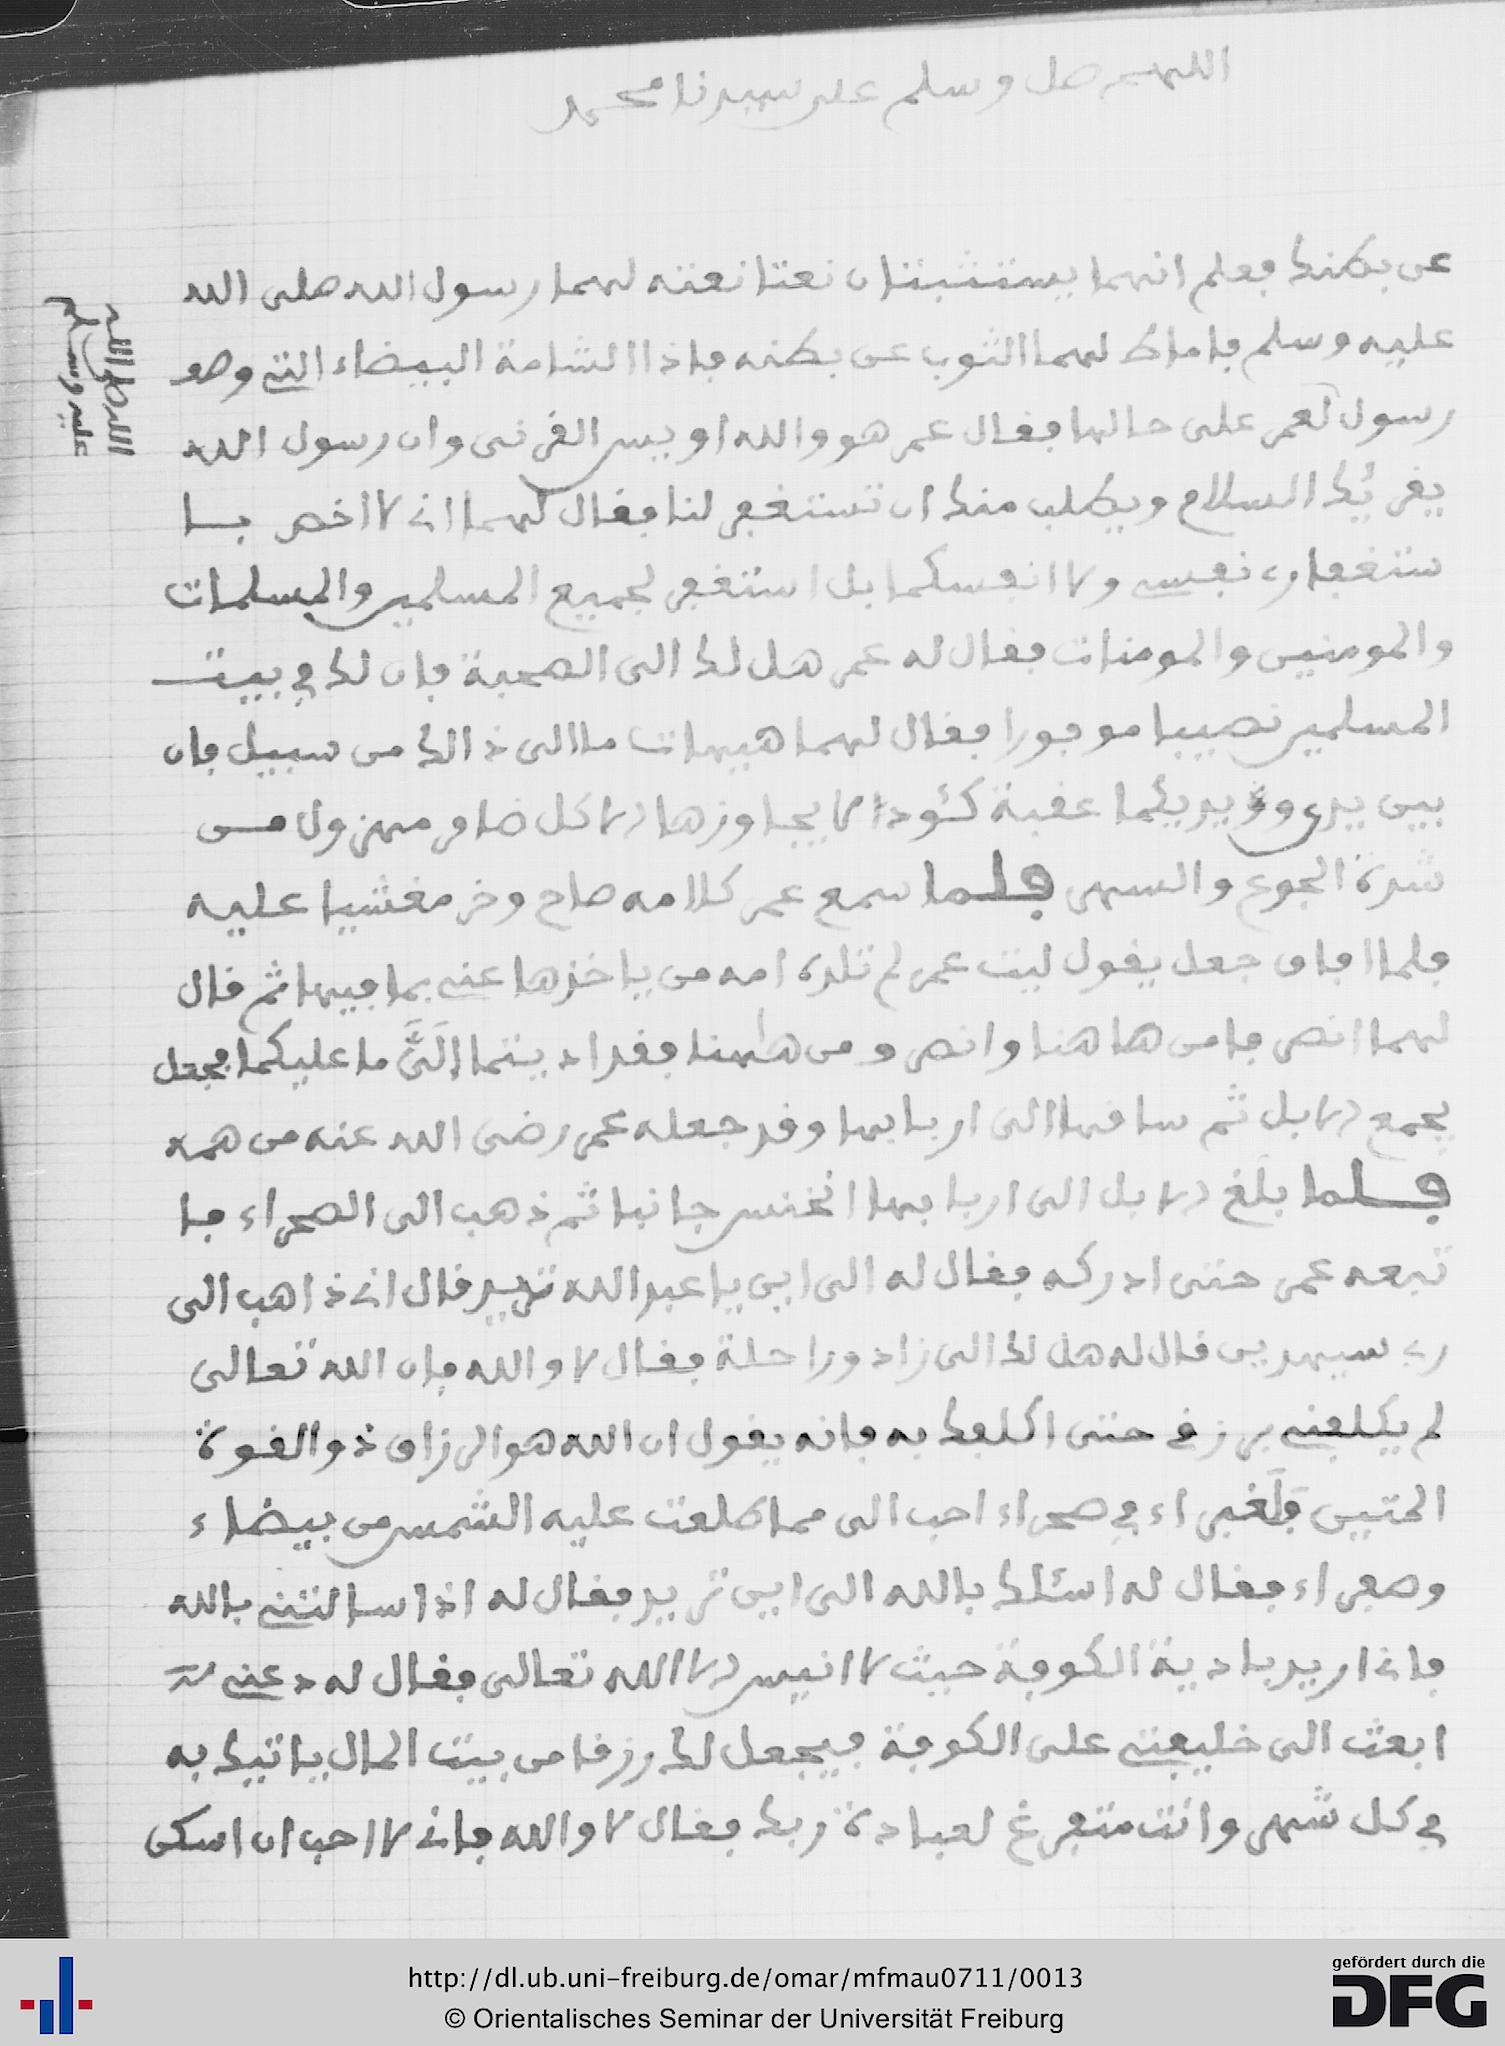 اللهم صل وسلم على سيدنا محمد
عن بطنك فعلم انهما يستثبتان نعتا نعته لهما رسول الله صلى الله
عليه وسلم فاماط لهما الثوب عن بطنه فاذا الشامة البيضاء التي وصف
رسول لعمر على حالها فقال عمر هو والله اويس القرني وان رسول الله
صلى الله عليه وسلم
يقرئك السلام ويطلب منك ان تستغفر لنا فقال لهما اني لا اخص با
ستغفاري نفسي ولا انفسكما بل استغفر لجميع المسلمين والمسلمات
والمومنين والمومنات فقال له عمر هل لك الى الصحبة فان لك في بيت
المسلمين نصيبا موفورا فقال لهما هيهات ما الى ذالك من سبيل فان
بين يدي ويديكما عقبة كئودا لا يجاوزها الا كل ضامر مهزول من
شدة الجوع والسهر فلما سمع عمر كلامه صاح وخر مغشيا عليه
فلما افاق جعل يقول ليت عمر لم تلده امه من ياخذها عني بما فيها ثم قال
لهما انصرفا من هاهنا وانصرف من هاهنا فقد اديتما إلَيَّ ما عليكما فجعل
يجمع الابل ثم ساقها الى اربابها وقد جعله عمر رضى الله عنه من همه
فلما بلغ الابل الى اربابها انخنس جانبا ثم ذهب الى الصحراء فا
تبعه عمر حتى ادركه فقال له الى اين يا عبد الله تريد قال اني ذاهب الى
ربي سيهدين قال له هل لك الى زاد وراحلة فقال لا والله فان الله تعالى
لم يكلفني برزقي حتى اكلفك به فانه يقول ان الله هو الرزاق ذو القوة
المتين فلغبراء في صحراء احب الى مما طلعت عليه الشمس من بيضاء
وصفراء فقال له اسئلك بالله الى اين تريد فقال له اذا سالتني بالله
فاني اريد بادية الكوفة حيث لا انيس الا الله تعالى فقال له دعني
ابعث الى خليفتي على الكوفة فيجعل لك رزقا من بيت المال ياتيك به
في كل شهر وانت متفرغ لعبادة ربك فقال لا والله فاني لا احب ان اسكن
http://dl.ub.uni-freiburg.de/omar/mfmau0711/0013
© Orientalisches Seminar der Universität Freiburg
gefördert durch die
DFG